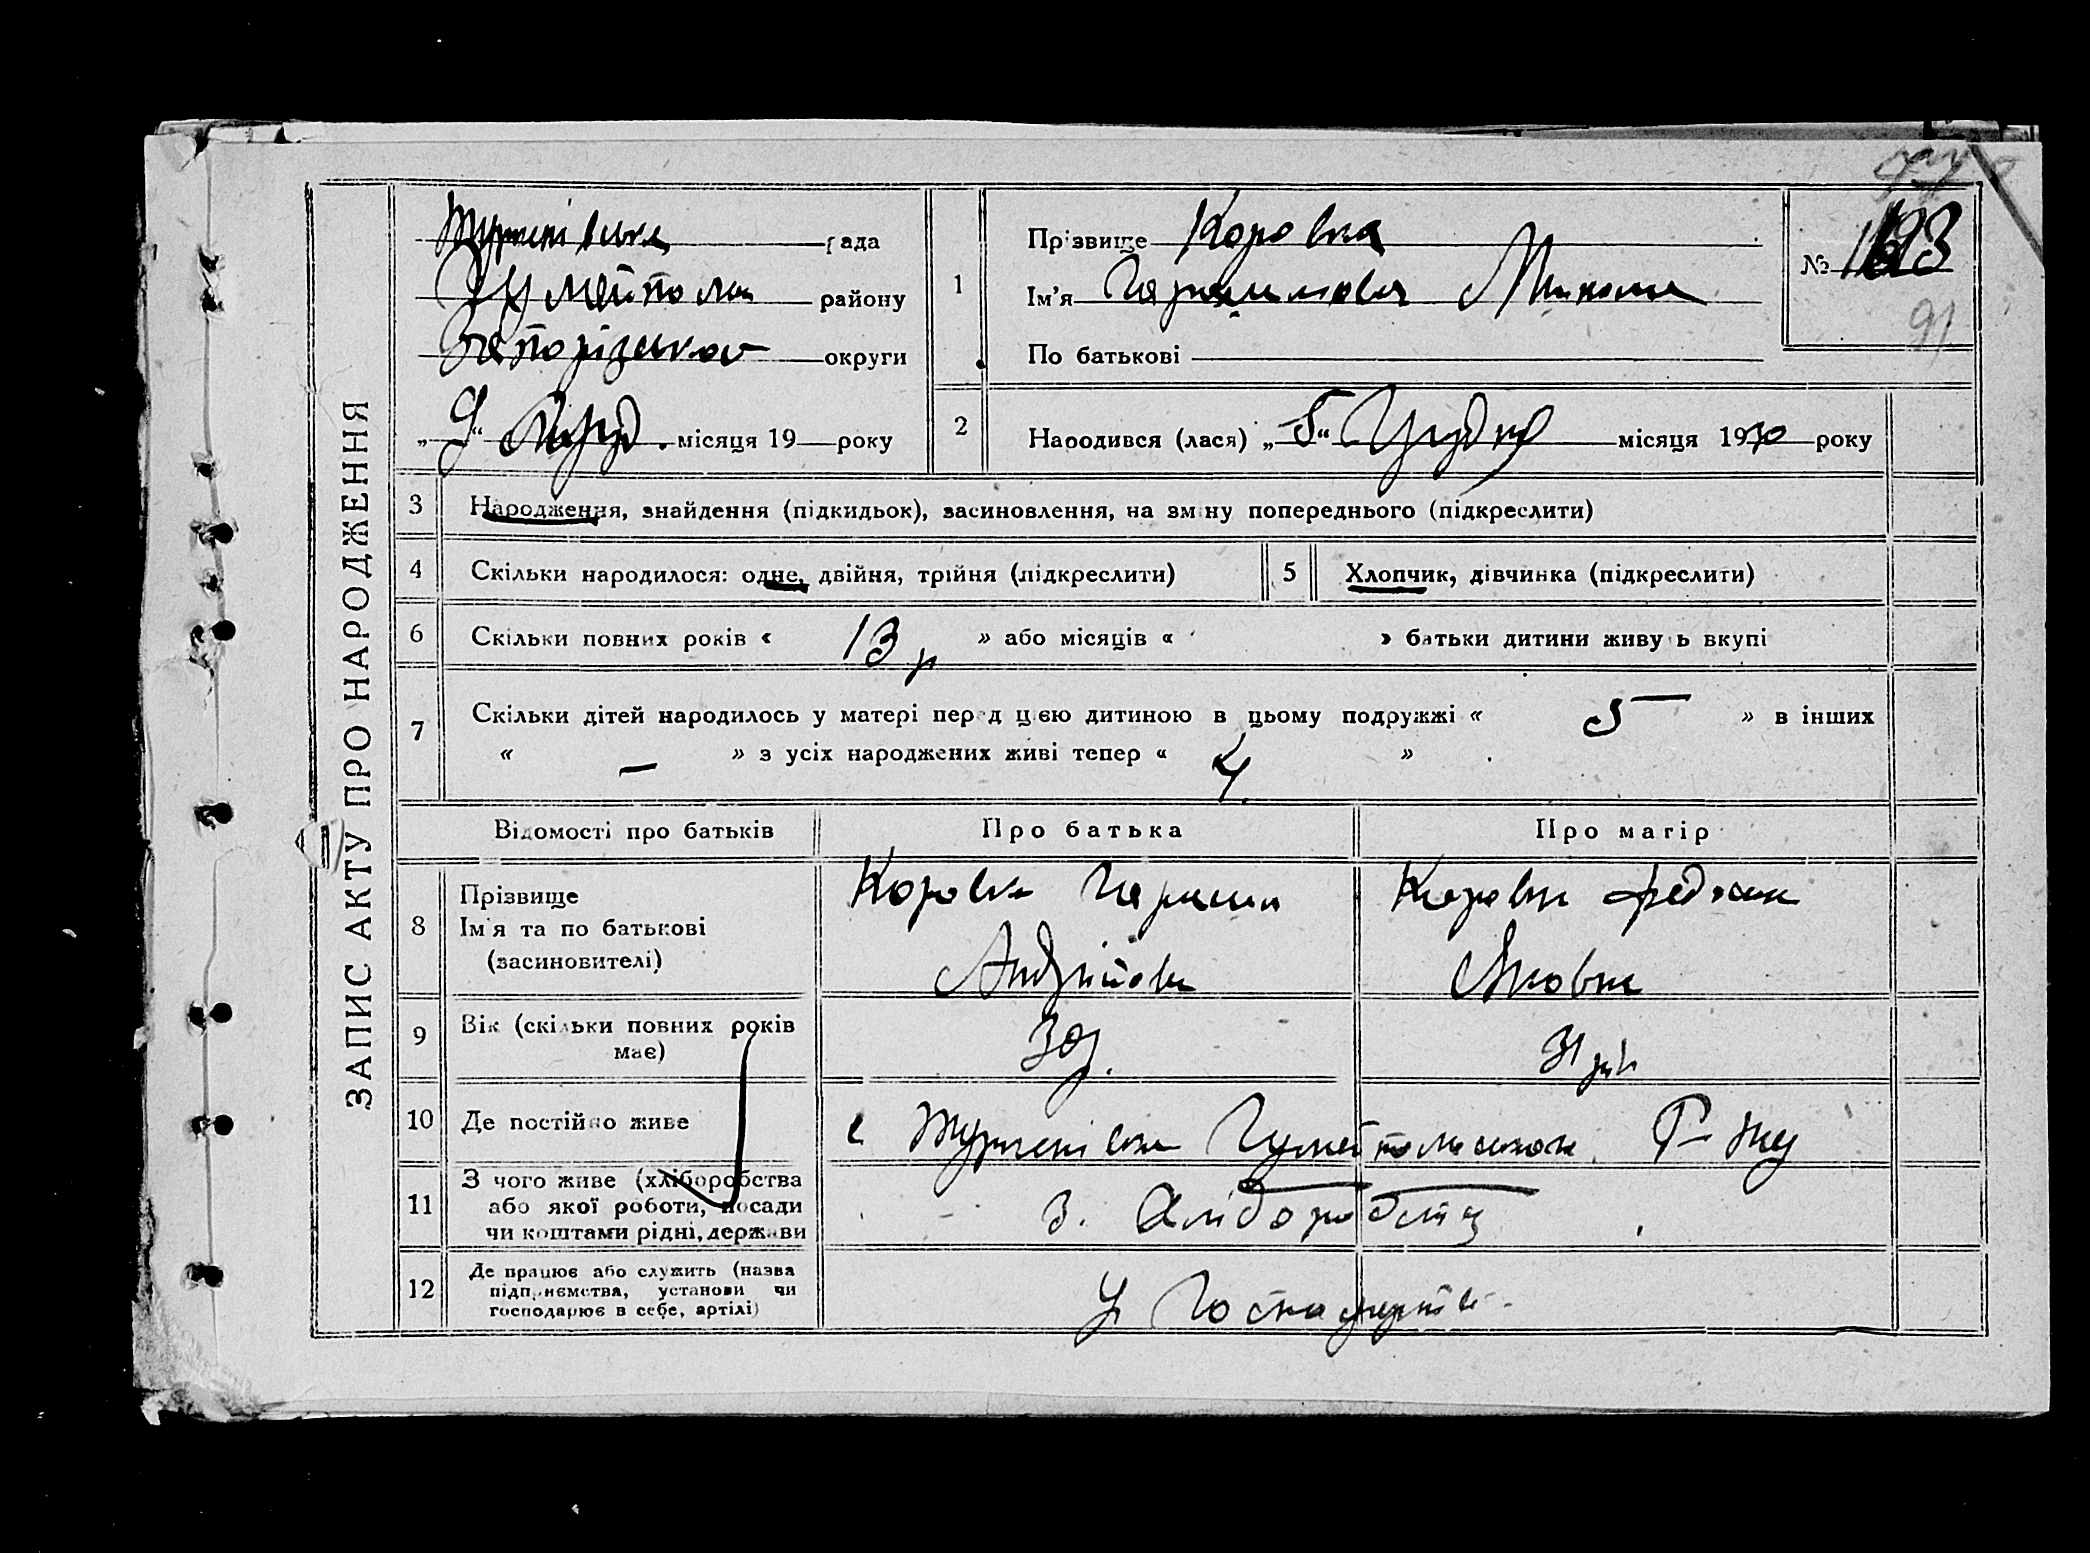 ЗАПИС АКТУ ПРО НАРОДЖЕННЯ
рада
району
Запорізької округи
„9“ місяця 19 року
1
Прізвище Коровка
Ім'я Микола
По батькові
№ 193
91
2
Народився (лася) „5“ Грудня місяця 1930 року
3 Народження, знайдення (підкидьок), засиновлення, на зміну попереднього (підкреслити)
4 Скільки народилося: одне, двійня, трійня (підкреслити) 5 Хлопчик, дівчинка (підкреслити)
6 Скільки повних років « 13 р » або місяців « » батьки дитини живуть вкупі
7 Скільки дітей народилось у матері перед цією дитиною в цьому подружжі « 5 » в інших
« — » з усіх народжених живі тепер « 4 »
Відомості про батьків Про батька Про матір
8 Прізвище
Ім'я та по батькові
(засиновителі)
Коровка
Андрійов
Коровка
Яковна
9 Вік (скільки повних років має)
31
10 Де постійно живе
с Р-ну
11 З чого живе (хліборобства
або якої роботи, посади
чи коштами рідні, держави
З. Хліборобства
12 Де працює або служить (назва
підприємства, установи чи
господарює в себе, артілі)
У Господарстві